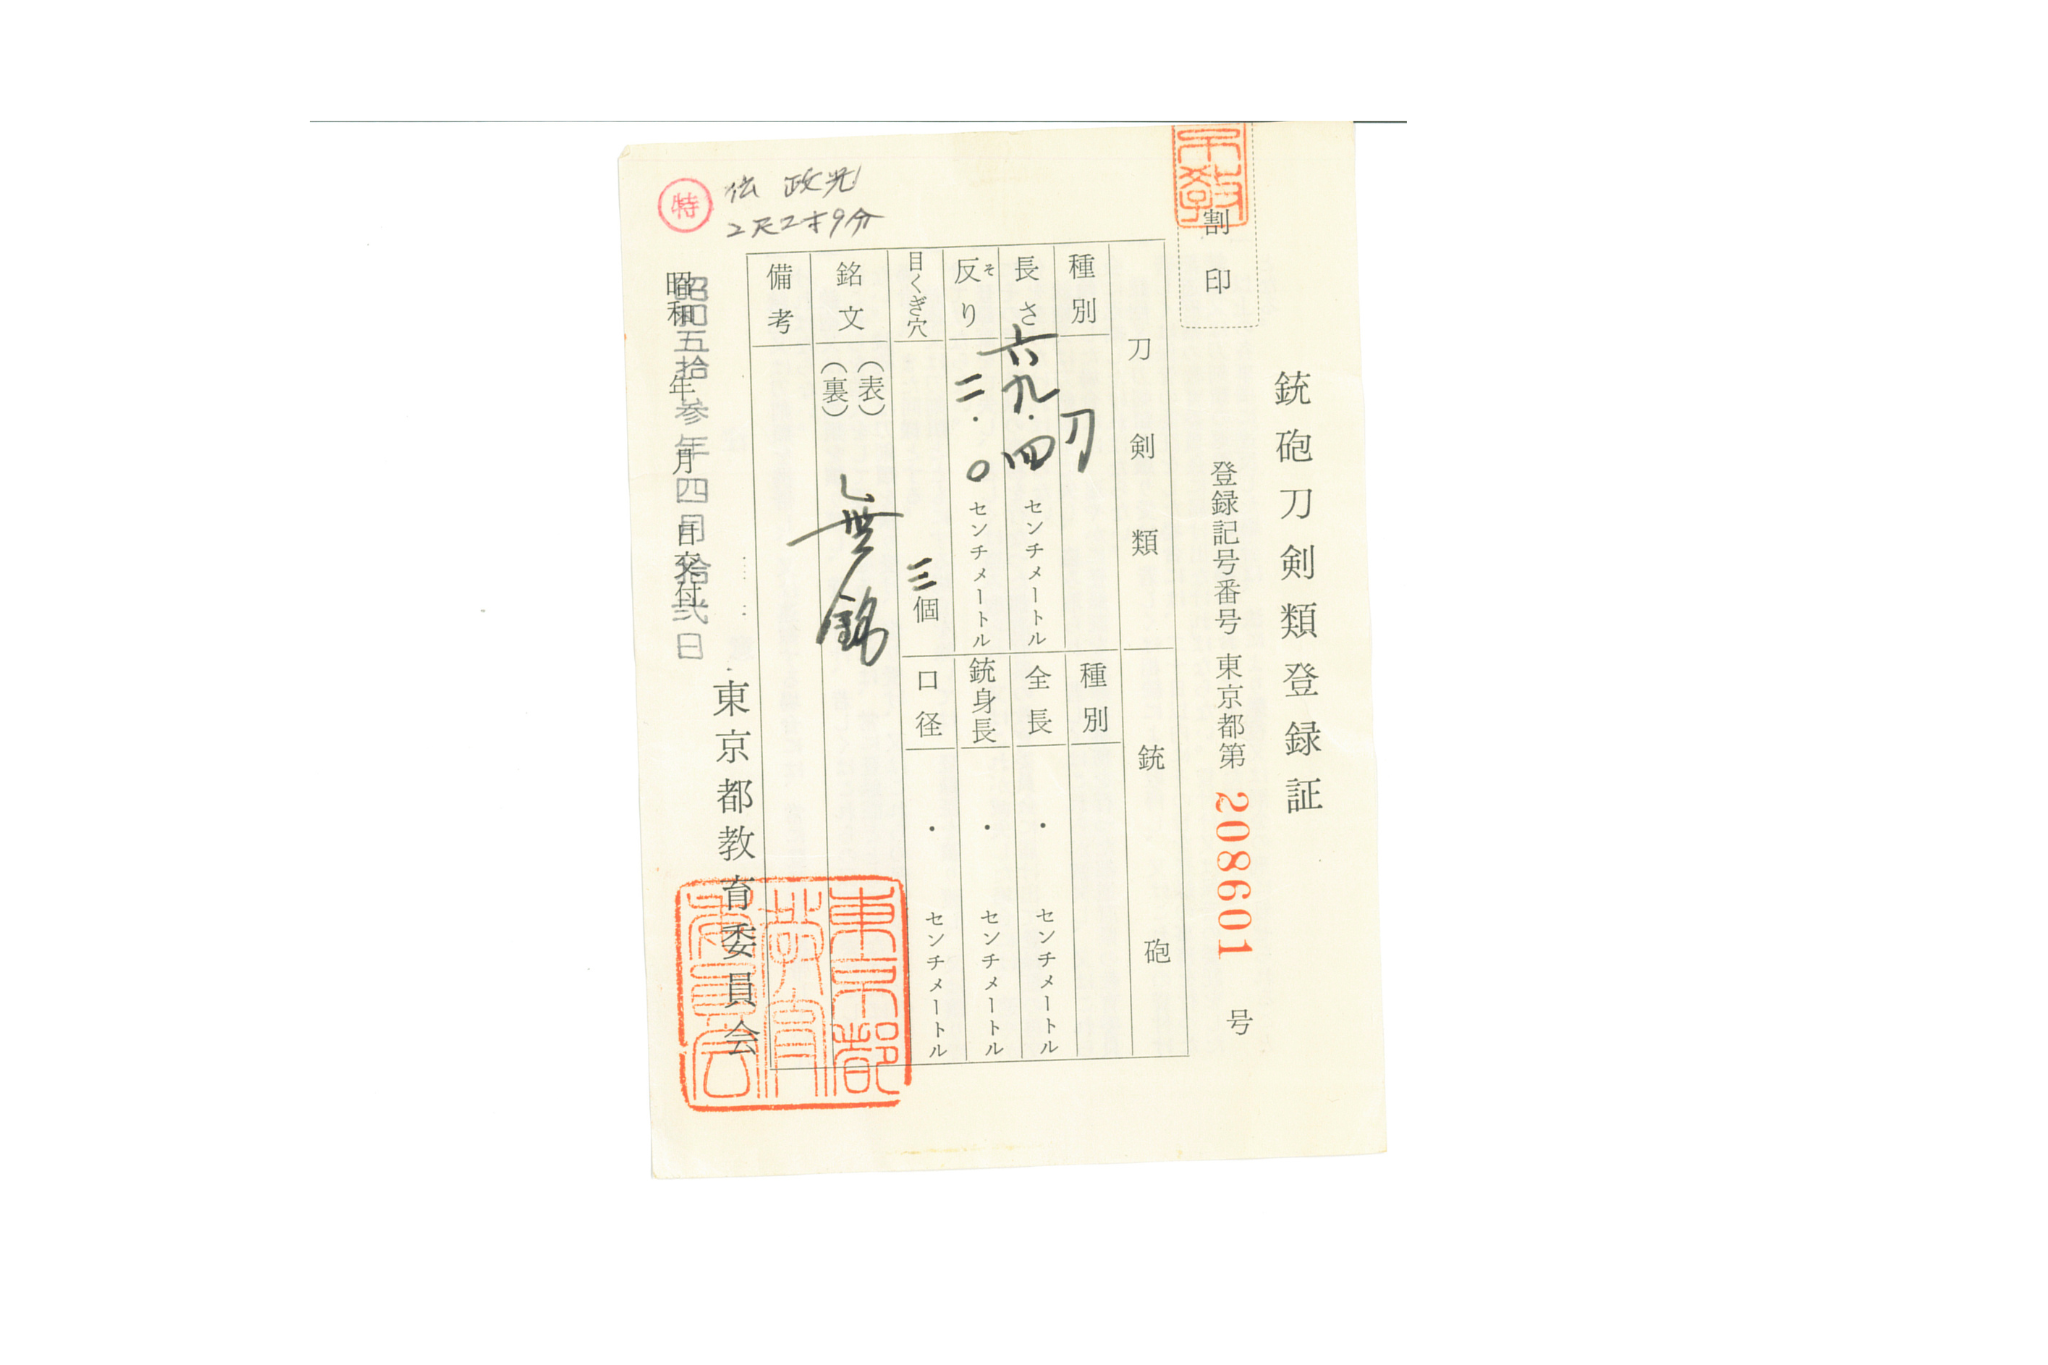 銃砲刀剣類登録証
割印
登録記号番号 東京都第 208601 号
刀剣類
銃砲
種別 刀
長さ 六九.四 センチメートル
反り そ 二.〇 センチメートル
目くぎ穴 三個
銘文 (表) (裏) 無銘
備考
種別
全長 . センチメートル
銃身長 . センチメートル
口径 . センチメートル
昭和 年 月 日交付
昭和五拾参年四月拾弐日
東京都教育委員会
東京都教育委員会
特
伝 政光
2尺2寸9分